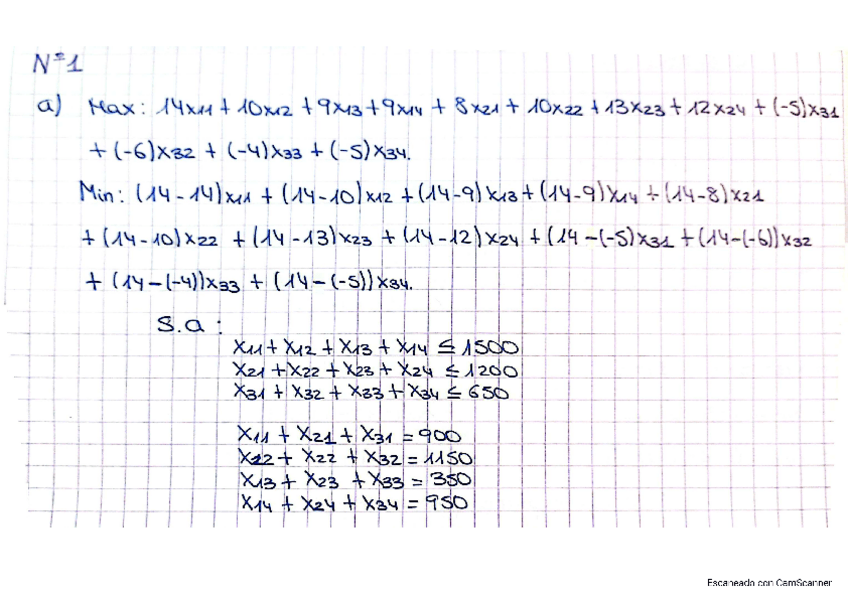 Nº1
a) Max: 14x11 + 10x12 + 9x13 + 9x14 + 8x21 + 10x22 + 13x23 + 12x24 + (-5)x31
+ (-6)x32 + (-4)x33 + (-5)x34.
Min: (14-14)x11 + (14-10)x12 + (14-9)x13 + (14-9)x14 + (14-8)x21
+ (14-10)x22 + (14-13)x23 + (14-12)x24 + (14-(-5)x31 + (14-(-6))x32
+ (14-(-4))x33 + (14-(-5))x34.
S.a:
x11 + x12 + x13 + x14 ≤ 1500
x21 + x22 + x23 + x24 ≤ 1200
x31 + x32 + x33 + x34 ≤ 650
x11 + x21 + x31 = 900
x12 + x22 + x32 = 1150
x13 + x23 + x33 = 350
x14 + x24 + x34 = 950
Escaneado con CamScanner